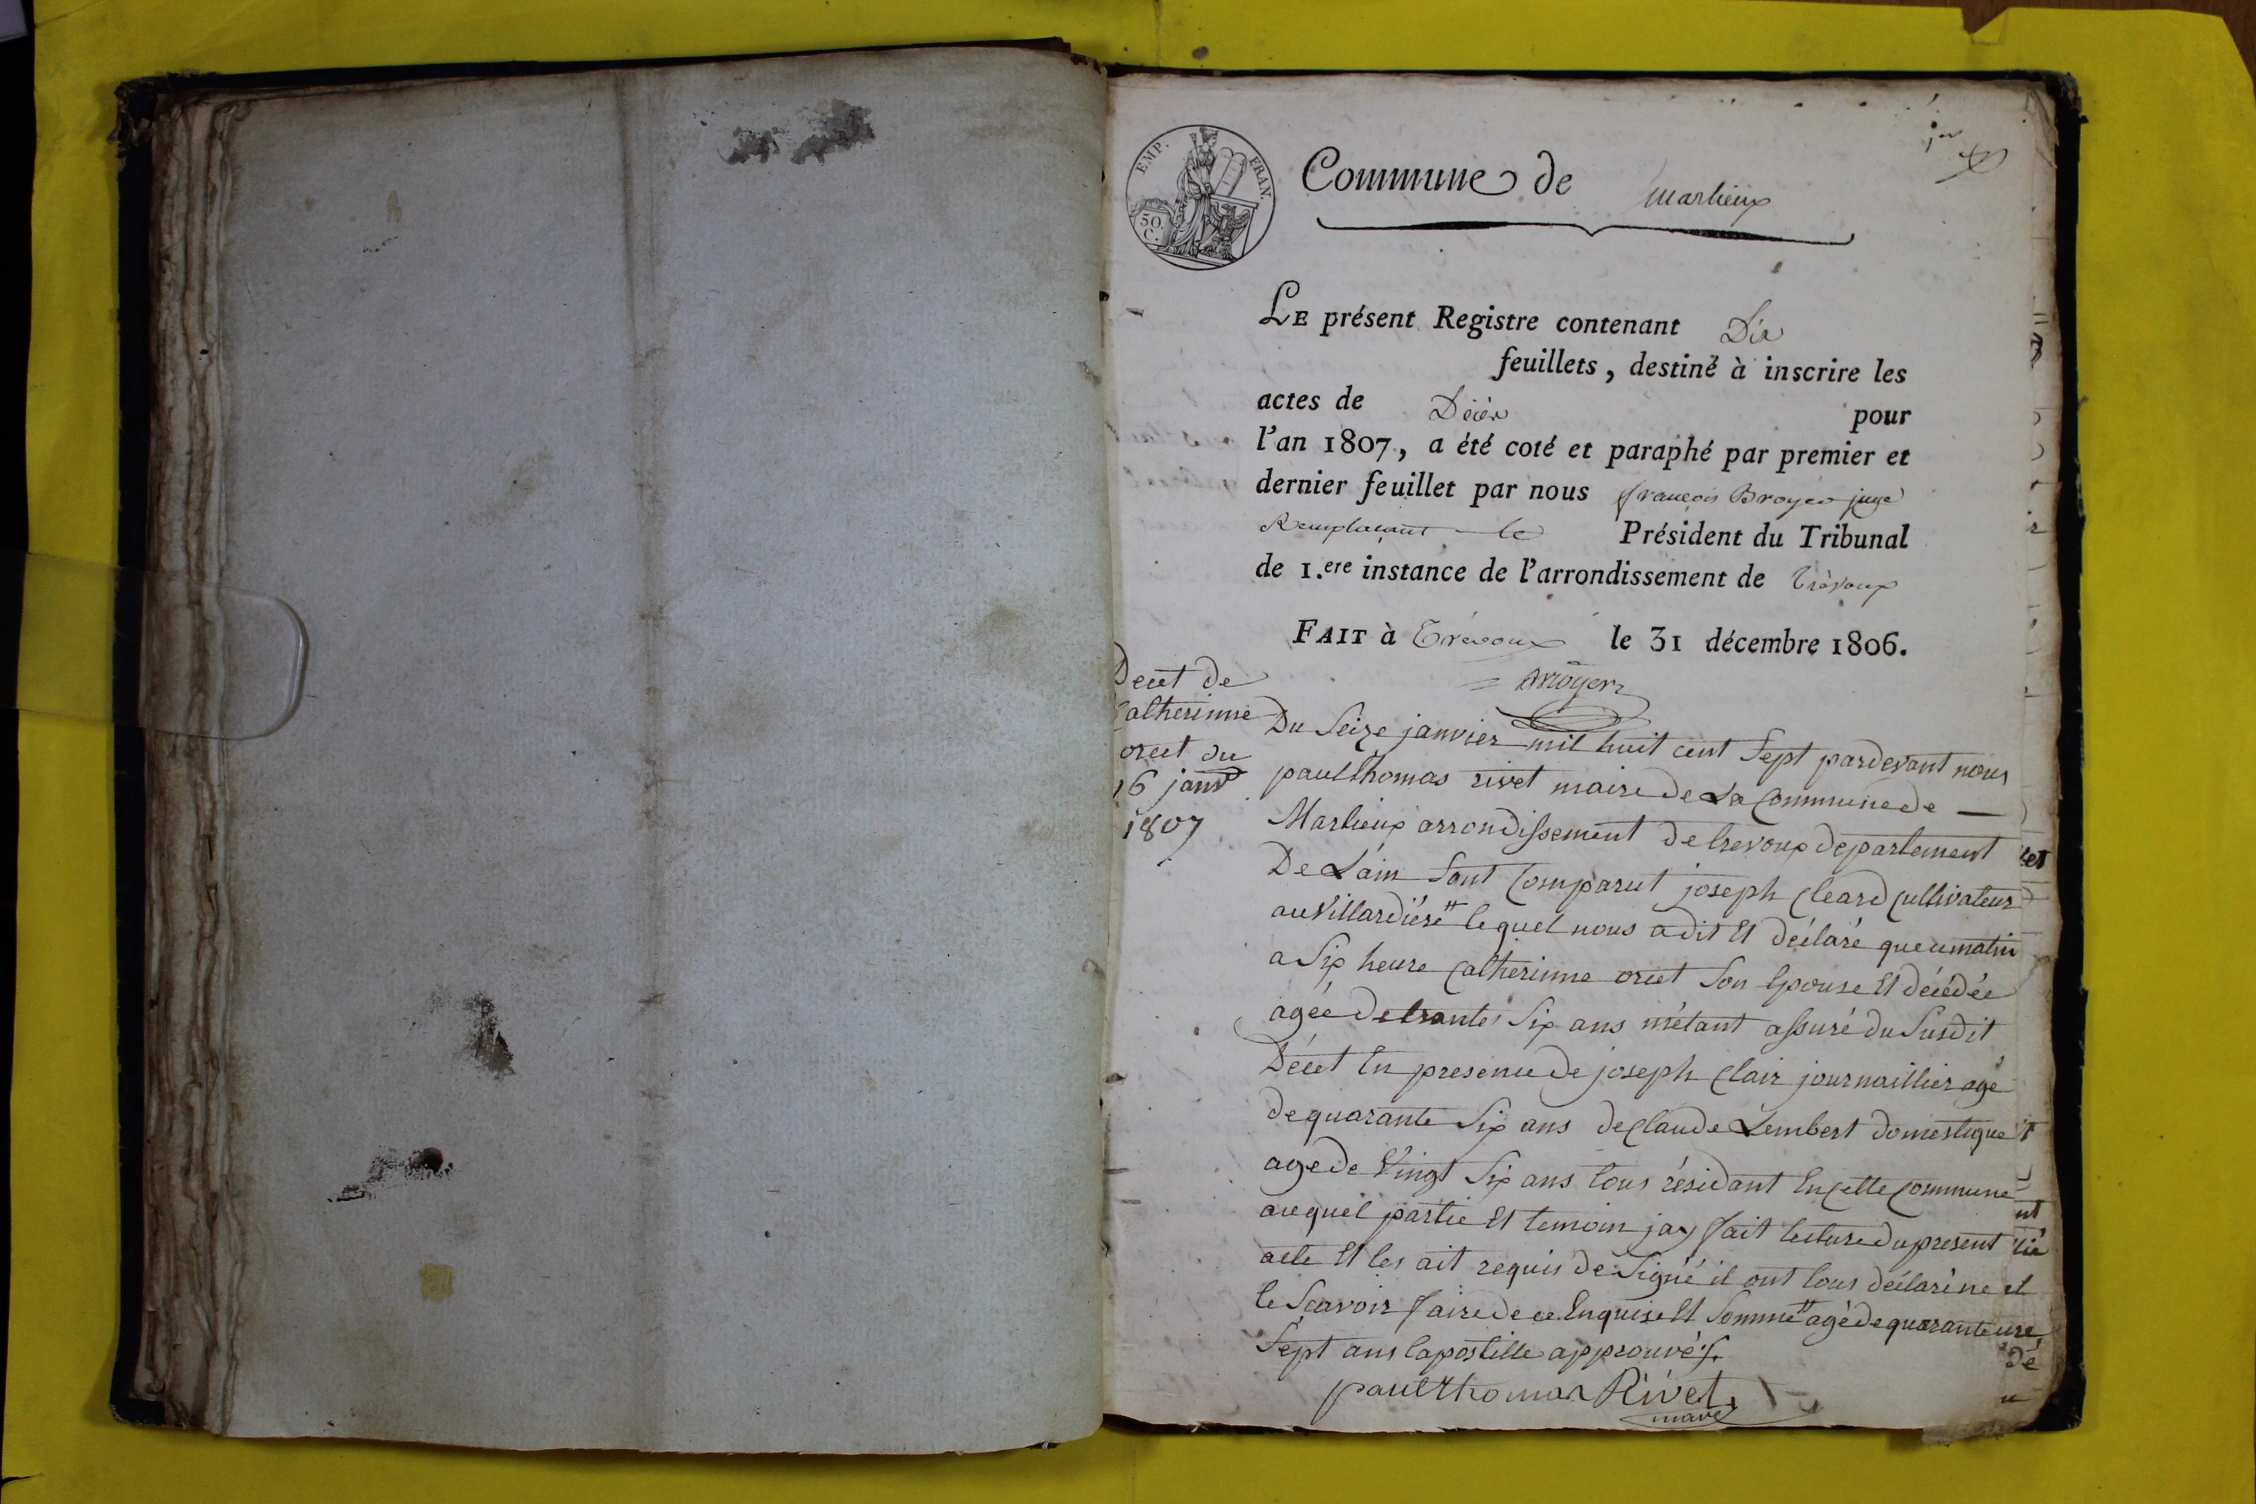 EMP. FRAN.
50 C.
1er
Commune de Marlieux
LE présent Registre contenant Dix
feuillets, destiné à inscrire les
actes de Décès pour
l'an 1807, a été coté et paraphé par premier et
dernier feuillet par nous françois Broyer juge
Remplacant le Président du Tribunal
de 1.ere instance de l'arrondissement de Trévoux
FAIT à Trévoux le 31 décembre 1806.
Broyer
Decet de
Catherinne
orcet du
16 janvr
1807
Du Seize janvier mil huit cent Sept pardevant nous
paul thomas rivet maire de La Commune de —
Marlieux arrondissement de trevoux departement
De Lain Sont Comparut joseph Cleard Cultivateur
au Villardiére # lequel nous a dit Et déclaré que ce matin
a Six heure Catherinne orcet Son Epouse Et décédée
agée De trante Six ans m'étant assuré du Susdit
Décet En presence de joseph Clair journaillier agé
de quarante Six ans de Claude Lembert domestique
age de Vingt Six ans tous résidant En Cette Commune
auquel partie Et temoin jay fait lecture du present
acte Et les ait requis de Signé il ont tous déclaré ne
le Scavoir faire de ce Enquise Et Sommé # agé de quarante
Sept ans lapostille approuvé ./.
paul thomas Rivet
maire